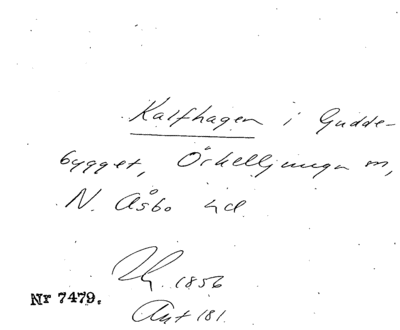 Kalfhagen i Gudde-
bygget, Örkelljunga sn,
N. Åsbo hd.
1856
Nr 7479.
Ant 181.